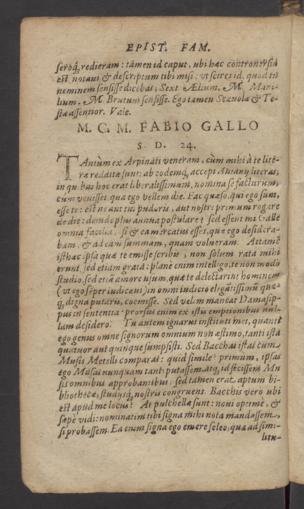 EPIST. FAM.
serbq́, redieram: tamen id caput, ubi hæc controversia
est notavi & descriptum tibi misi: ut scires id, quod tu
neminem sensisse dicebas, Sext. Ælium, M. Mani-
lium, M. Brutum sensisse. Ego tamen Scævola & Te-
stæ assentior. Vale.
M. C. M. FABIO GALLO
S. D. 24.
TAntùm ex Arpinati veneram, cùm mihi à te lite-
ræ redditæ sunt: ab eodemq́, accepi Aviany literas,
in quibus hoc erat liberalissimum, nomina se facturum,
cum venisses qua ego vellem die. Fac quæso, qui ego sum,
esse te: est ne aut tui pudoris, aut nostri primum rogare
de die: deinde plus annua postulare? sed essent mi Galle
omnia facilia, si & ea mercatus esses, quæ ego desidera-
bam, & ad eam summam, quam volueram. Attamē
ista ipsa quæ te emisse scribis, non solùm rata mihi
erunt, sed etiam grata: planè enim intellego, te non modo
studio, sed etiā amore usum, quæ te delectarint: hominem
(ut ego semper iudicavi) in omni iudicio elegātissimū quæ-
q́, digna putaris, coëmisse. Sed velim maneat Damasip-
pus in sententia: prorsus enim ex istis emptionibus nul-
lam desidero. Tu autem ignarus instituti mei, quanti
ego genus omne signorum omnium non æstimo, tanti ista
quatuor aut quinque sumpsisti. Sed Bacchas istas cum
Musis Metelli comparas: quid simile? primum, ipsas
ego Musas nunquam tanti putassem. atq́, id fecissem Mu-
sis omnibus approbantibus: sed tamen erat aptum bi-
bliothecæ, studijsq́, nostris congruens. Bacchis vero ubi
est apud me locus? At pulchellæ sunt: novi optimè, &
sæpè vidi: nominatim tibi signa mihi nota mandassem,
si probassem. Ea enim signa ego emere soleo, quæ ad simi-
litu-